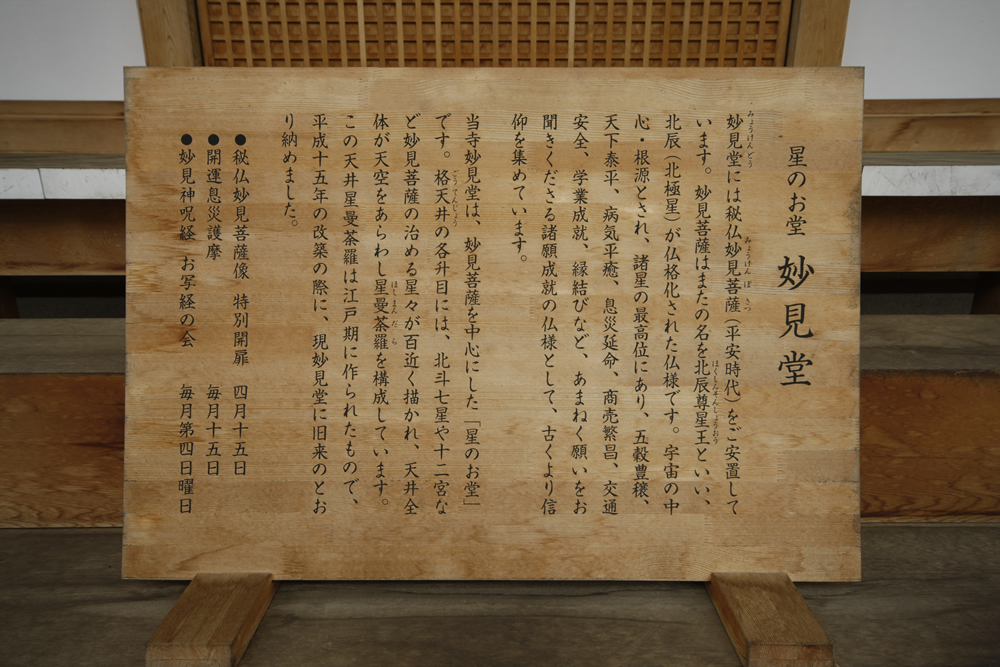 星のお堂 妙見堂
妙見堂には秘仏妙見菩薩(平安時代)をご安置して
います。妙見菩薩はまたの名を北辰尊星王といい、
北辰(北極星)が仏格化された仏様です。宇宙の中
心・根源とされ、諸星の最高位にあり、五穀豊穣、
天下泰平、病気平癒、息災延命、商売繁昌、交通
安全、学業成就、縁結びなど、あまねく願いをお
聞きくださる諸願成就の仏様として、古くより信
仰を集めています。
当寺妙見堂は、妙見菩薩を中心にした「星のお堂」
です。格天井の各升目には、北斗七星や十二宮な
ど妙見菩薩の治める星々が百近く描かれ、天井全
体が天空をあらわし星曼荼羅を構成しています。
この天井星曼荼羅は江戸期に作られたもので、
平成十五年の改築の際に、現妙見堂に旧来のとお
り納めました。
●秘仏妙見菩薩像 特別開扉 四月十五日
●開運息災護摩 毎月十五日
●妙見神呪経 お写経の会 毎月第四日曜日